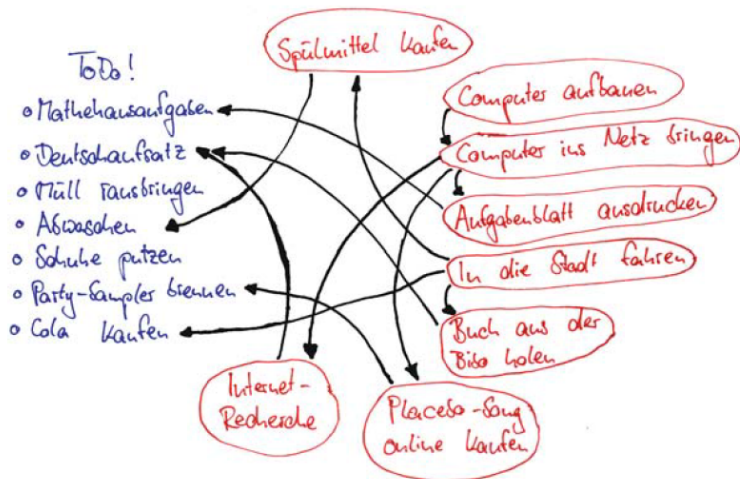 ToDo!
• Mathehausaufgaben
• Deutschaufsatz
• Müll rausbringen
• Abwaschen
• Schuhe putzen
• Party-Sampler brennen
• Cola kaufen
Spülmittel kaufen
Computer aufbauen
Computer ins Netz bringen
Aufgabenblatt ausdrucken
In die Stadt fahren
Buch aus der
Bibo holen
Internet-
Recherche
Placebo-Song
online kaufen